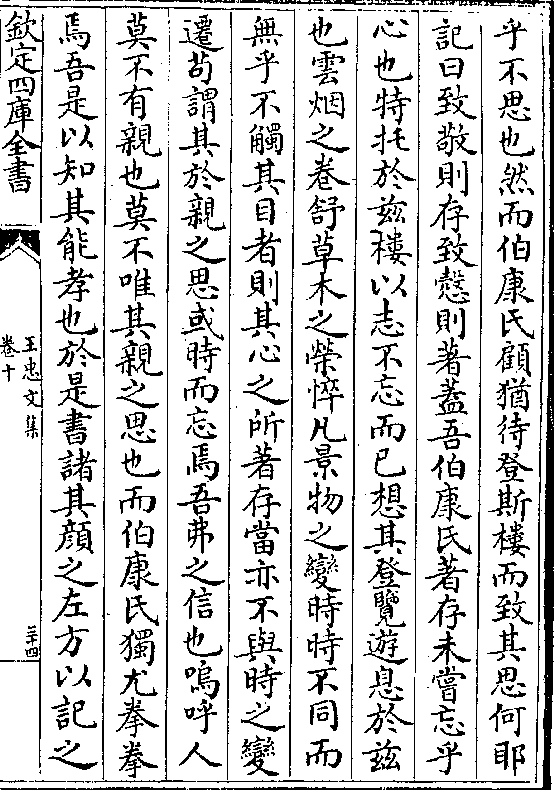 乎不思也然而伯康氏顧猶待登斯樓而致其思何耶
記曰致敬則存致慤則著蓋吾伯康氏著存未嘗忘乎
心也特托於兹樓以志不忘而已想其登覽遊息於兹
也雲烟之卷舒草木之榮悴凡景物之變時時不同而
無乎不觸其目者則其心之所著存當亦不與時之變
遷苟謂其於親之思或時而忘焉吾弗之信也嗚呼人
莫不有親也莫不唯其親之思也而伯康氏獨尤拳拳
焉吾是以知其能孝也於是書諸其顔之左方以記之
欽定四庫全書
王忠文集
卷十
三十四